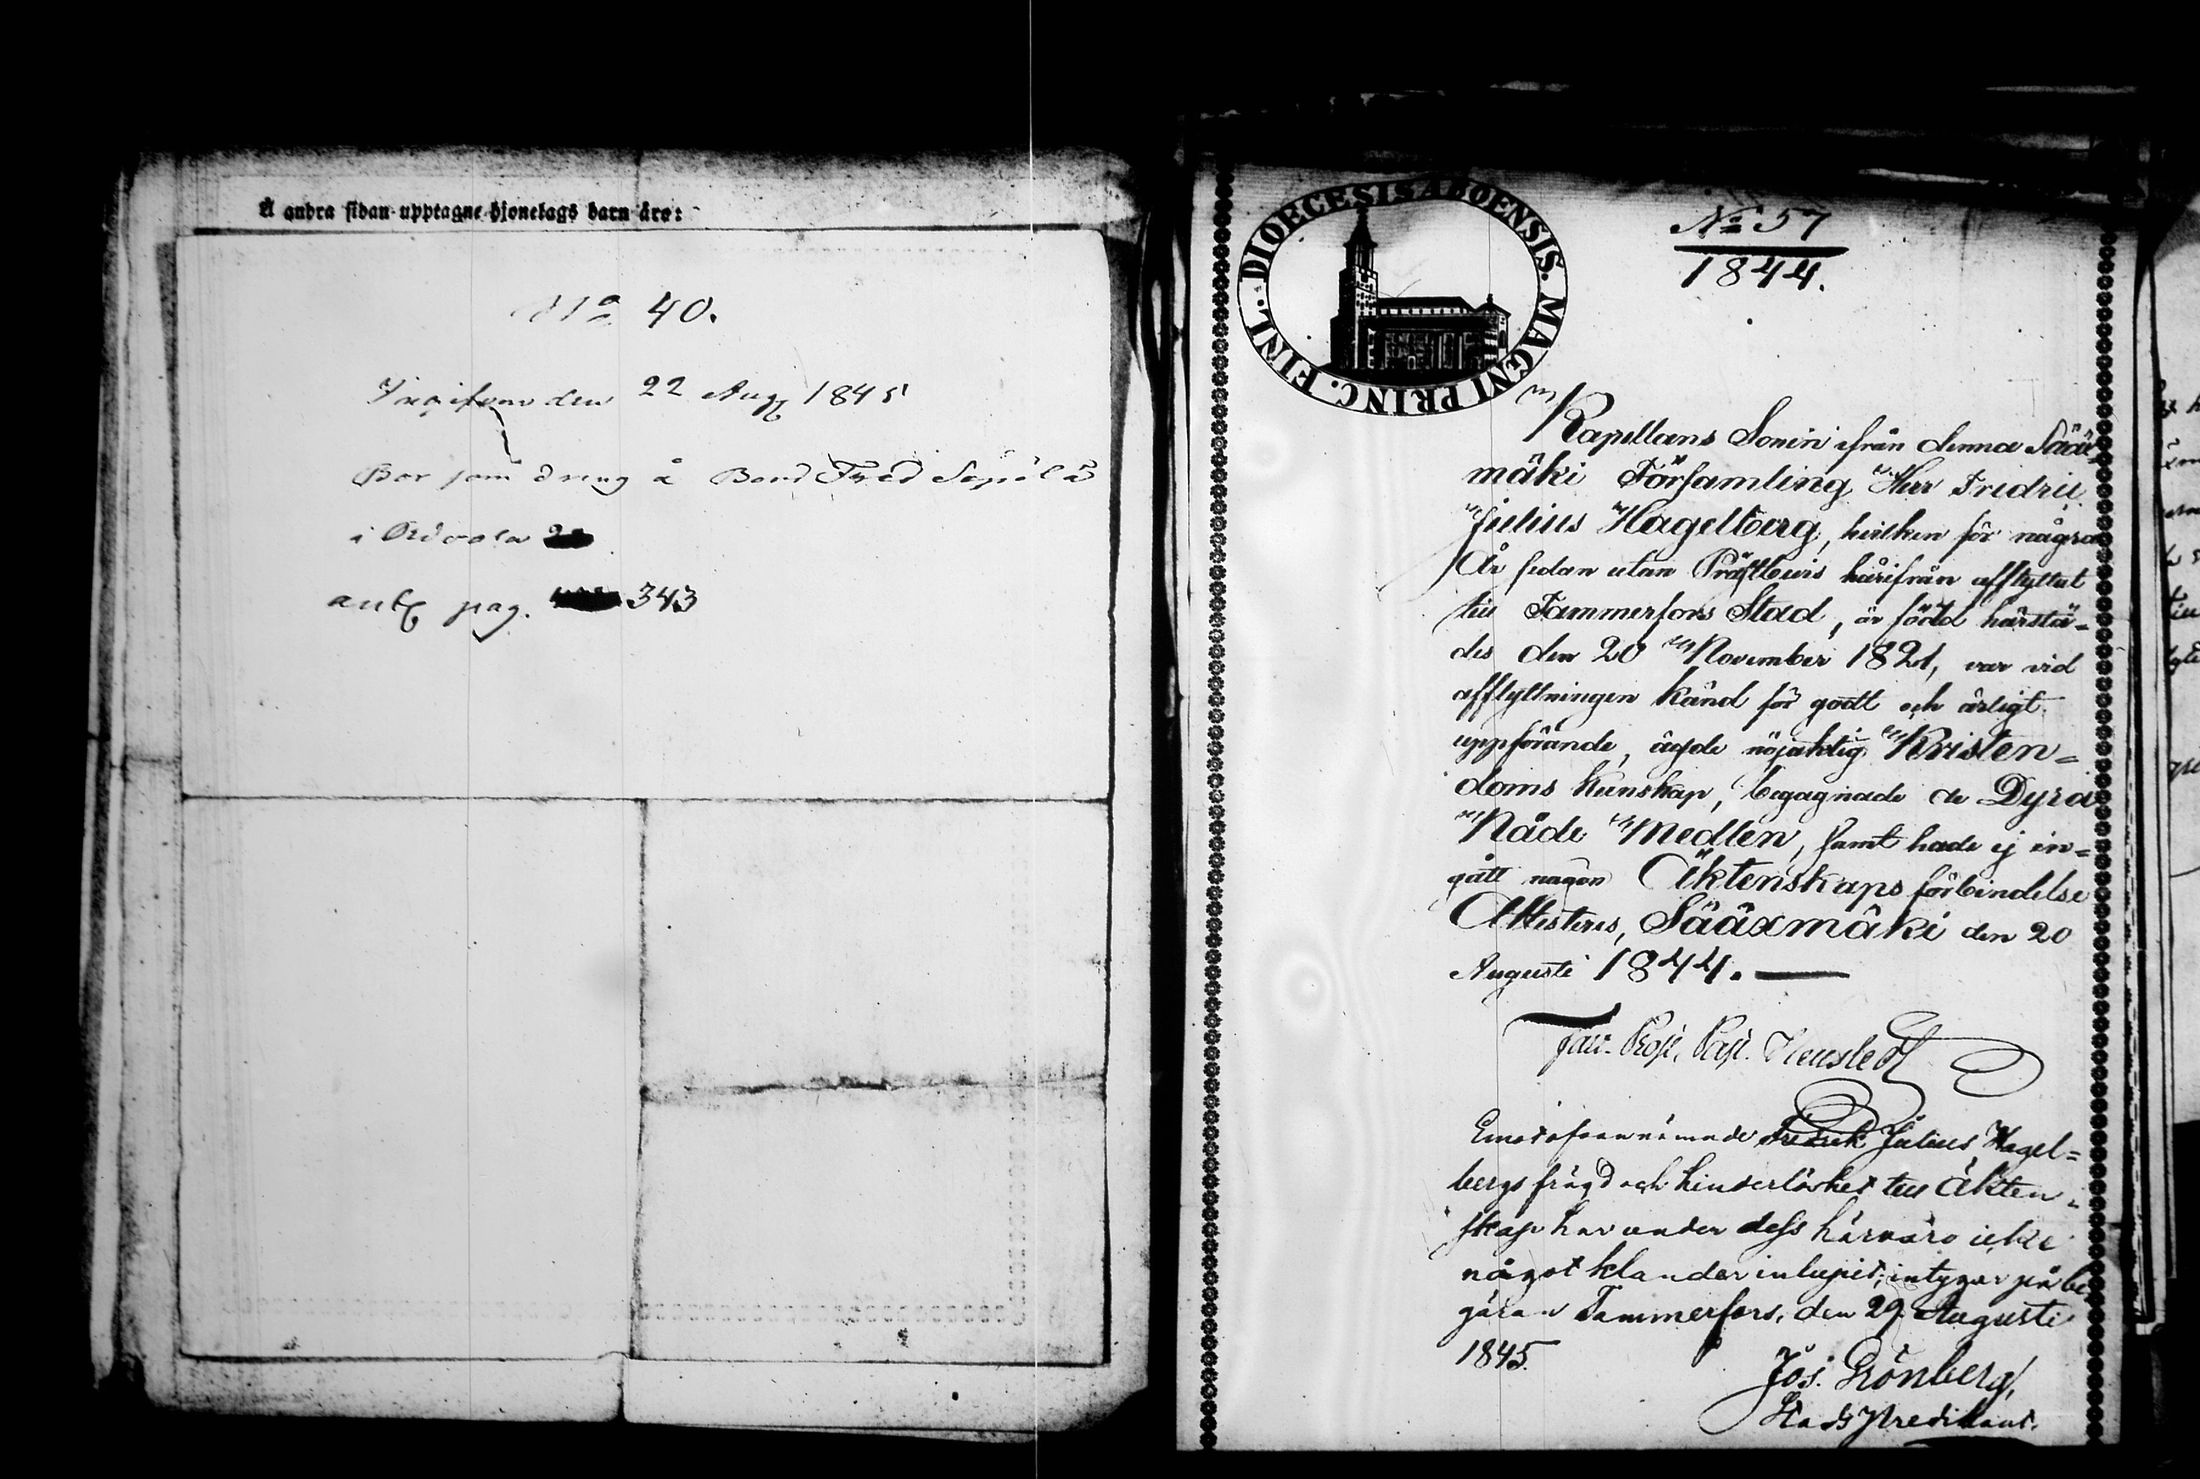 Å andra sidan upptagne hjonelags barn äro:
No 40.
den 22 Aug 1845
Bor som dreng å Bond Fred Sepälä
i
ant pag. 343
DIOECESIS ABOENSIS. MAGNI PRINC. FINL.
No 57
1844.
Kapellans Sonen ifrån denna Sääx
mäki Församling Herr Fridric
Julius Hagelberg, hvilken för några
År sedan utan Prästbevis härifrån afflyttat
till Tammerfors Stad, är född härstä=
des den 20 November 1821, var vid
afflyttningen känd för godt och ärligt
uppförande, ägde nöjaktig Kristen=
doms Kunskap, begagnade de Dyra
Nåde Medlen, samt hade ej in=
gått någon Äktenskaps förbindelse
Attesteres, Sääxmäki den 20
Augusti 1844.
Prost,
Emot ofvannämnde Fredrik Julius Hagel=
bergs frägd och hinderlöshet till äkten=
skap har under dess härvaro icke
något klander inlupit; intygar på be
gäran Tammerfors, den 29 Augusti
1845.
Jos. Grönberg,
Stads Predikant.